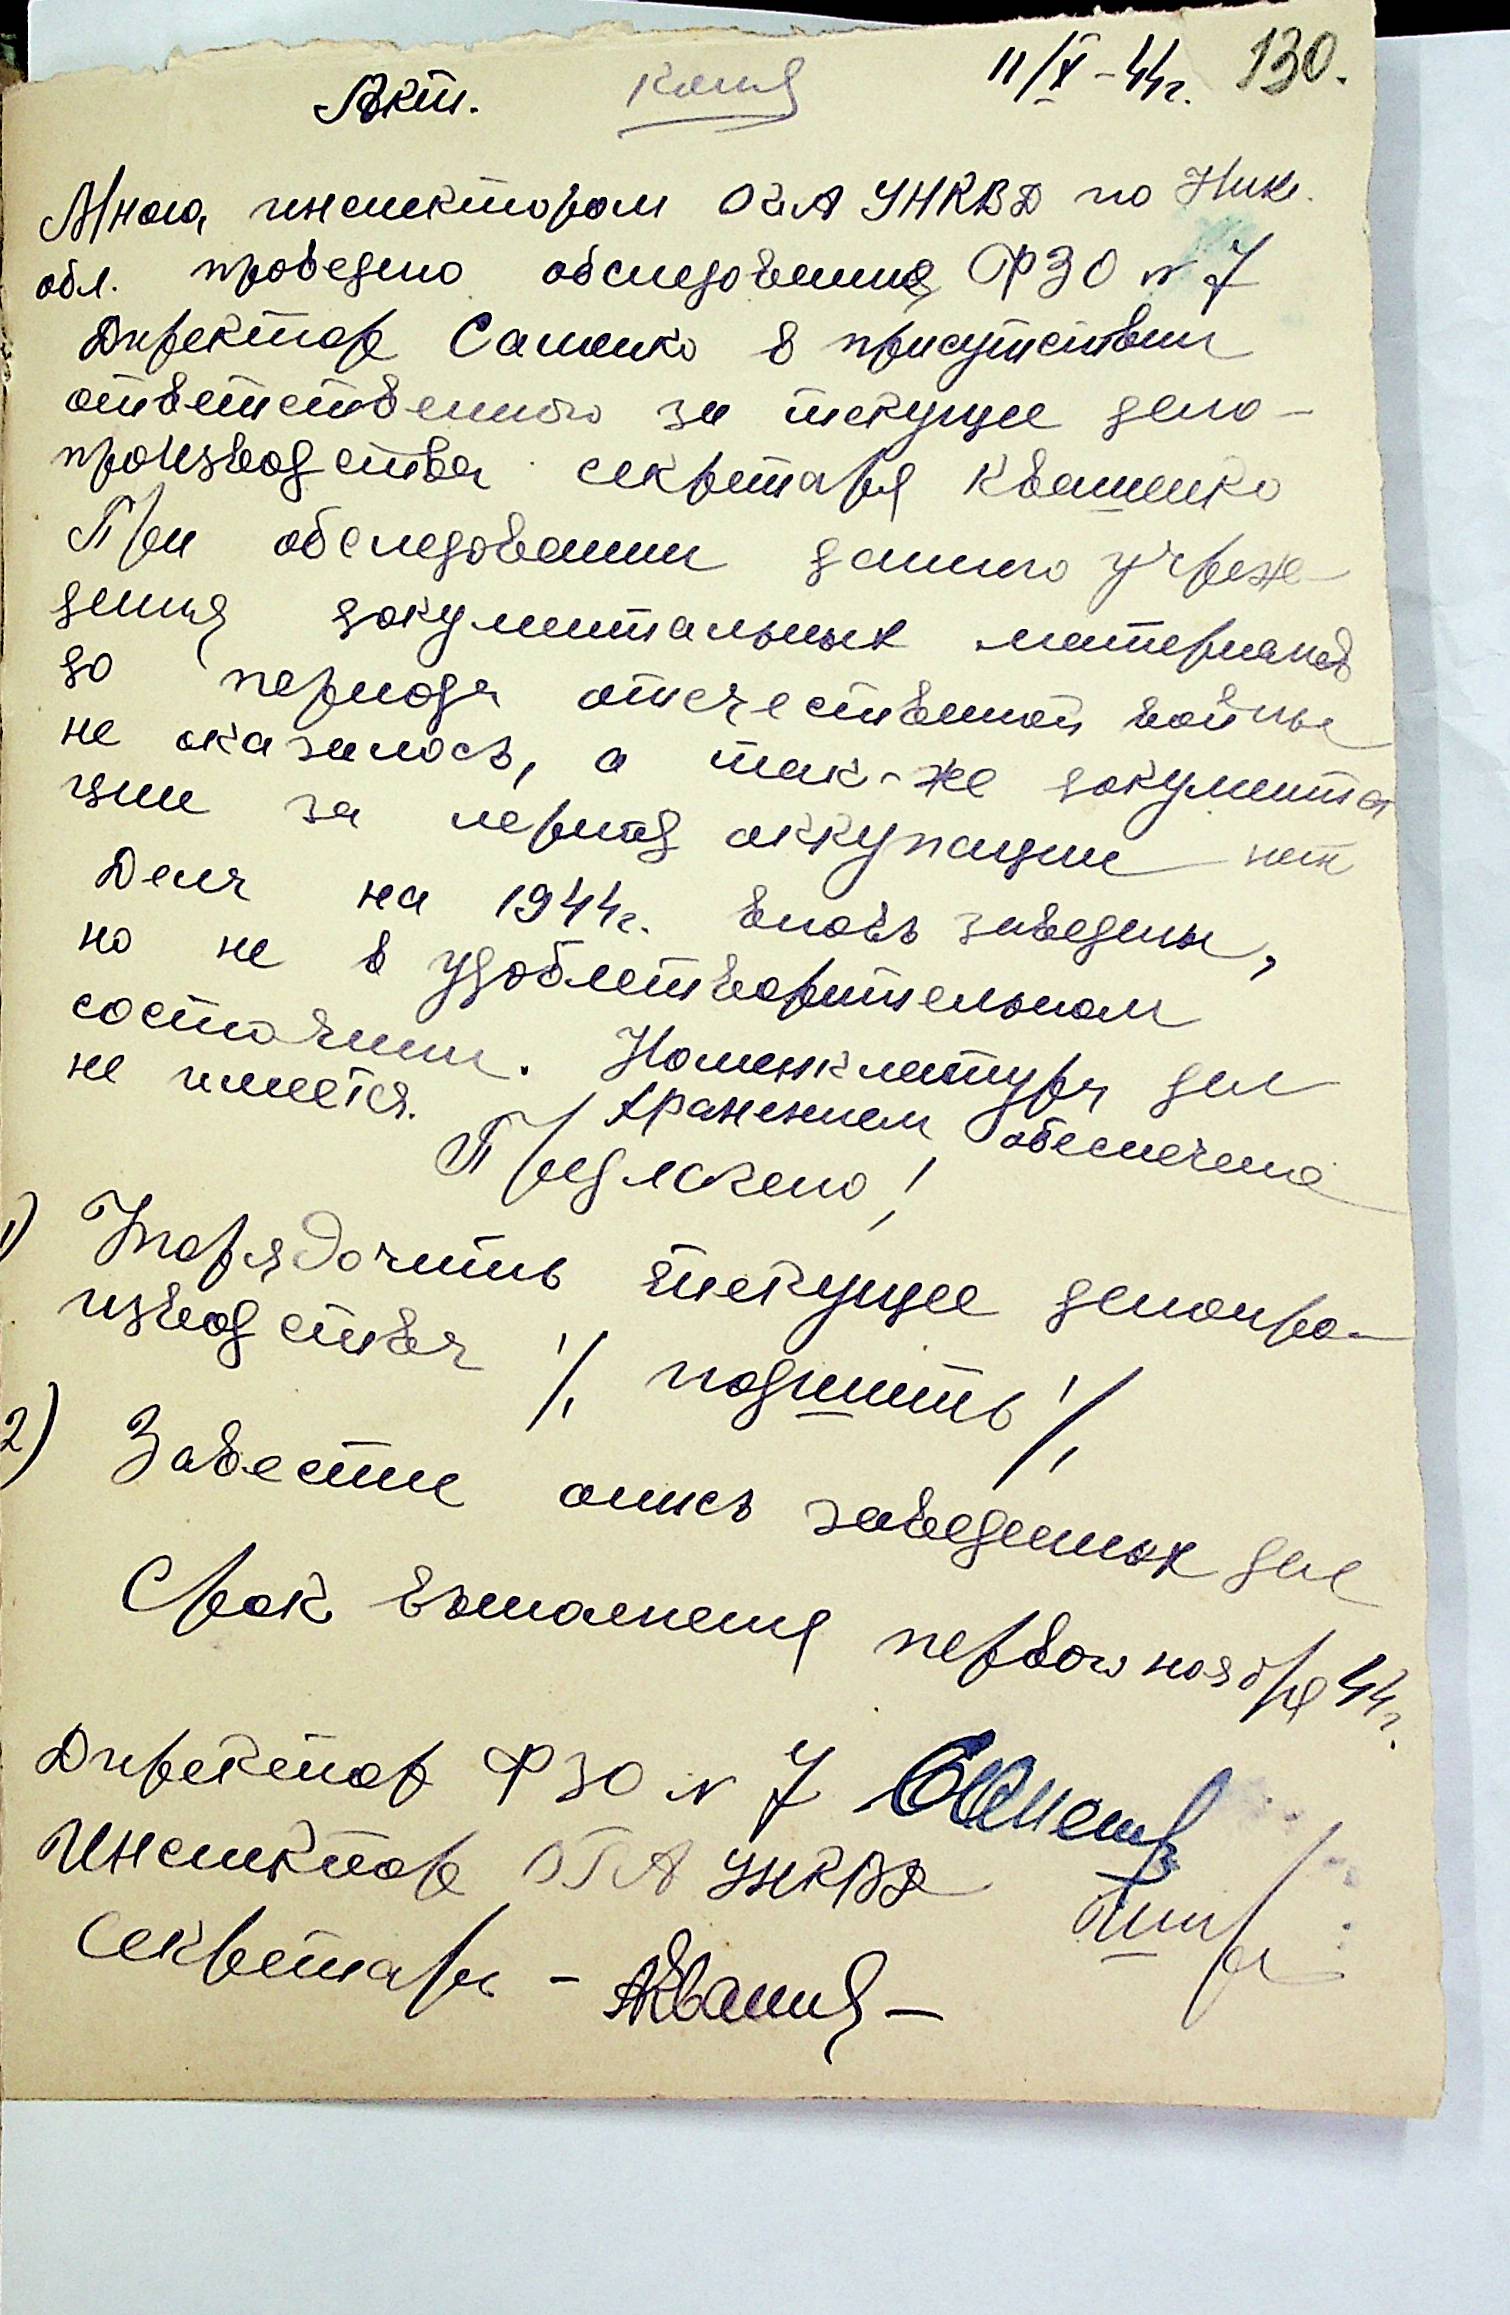 11/X-44г. 130.
Акт. Копия
Мною, инспектором ОГА УНКВД по Ник.
обл. проведено обследование ФЗО № 7
Директор Саменко в присутствии
ответственного за текущее дело-
производства секретаря Квашенко
При обследовании данного учреж-
дения документальных материалов
до периода отечественной войны
не оказалось, а так-же документа
ции за период оккупации нет
Дела на 1944г. вновь заведены,
но не в удовлетворительном
состоянии. Номенклатура дел
не имеется. Хранением обеспечено
Предложено!
1) Упорядочить текущее делопро-
изводства /. подшить /.
2) Завести опись заведенных дел
Срок выполнения первого ноября 44г.
Директор ФЗО № 7
Инспектор ОГА УНКВД
Секретарь -